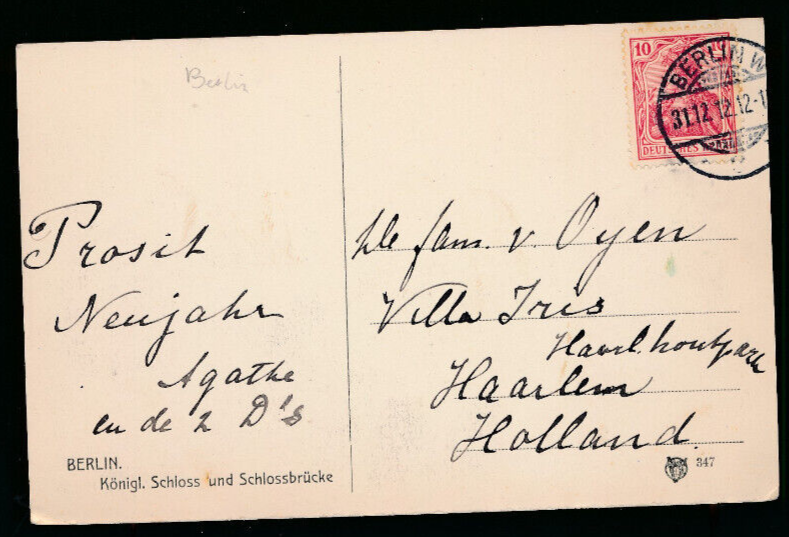 Berlin
10 10
BERLIN W
31.12.12.12-1
DEUTSCHES REICH
Prosit
Neujahr
Agathe
en de 2 D's
fam. v. Oyen
Villa Iris
Haarl. houtpark
Haarlem
Holland.
BERLIN.
Königl. Schloss und Schlossbrücke
347